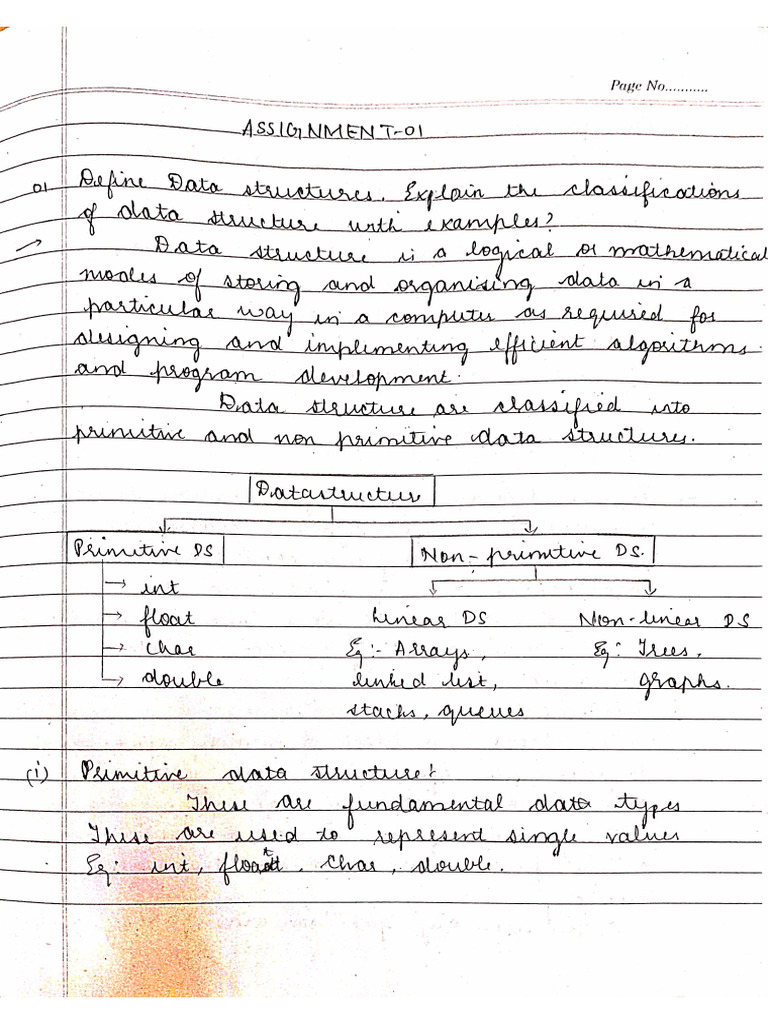 Page No...........
ASSIGNMENT-01
01 Define Data structures. Explain the classifications
of data structure with examples?
→ Data structure is a logical or mathematical
modes of storing and organising data in a
particular way in a computer as required for
designing and implementing efficient algorithms
and program development.
Data structure are classified into
primitive and non primitive data structures.
Datastructure
Primitive DS Non-primitive DS.
→ int
→ float Linear DS Non-linear DS
→ char Eg:- Arrays, Eg: Trees,
→ double linked list, graphs.
stacks, queues
(i) Primitive data structure:
These are fundamental data types
These are used to represent single values
Eg: int, float, char, double.